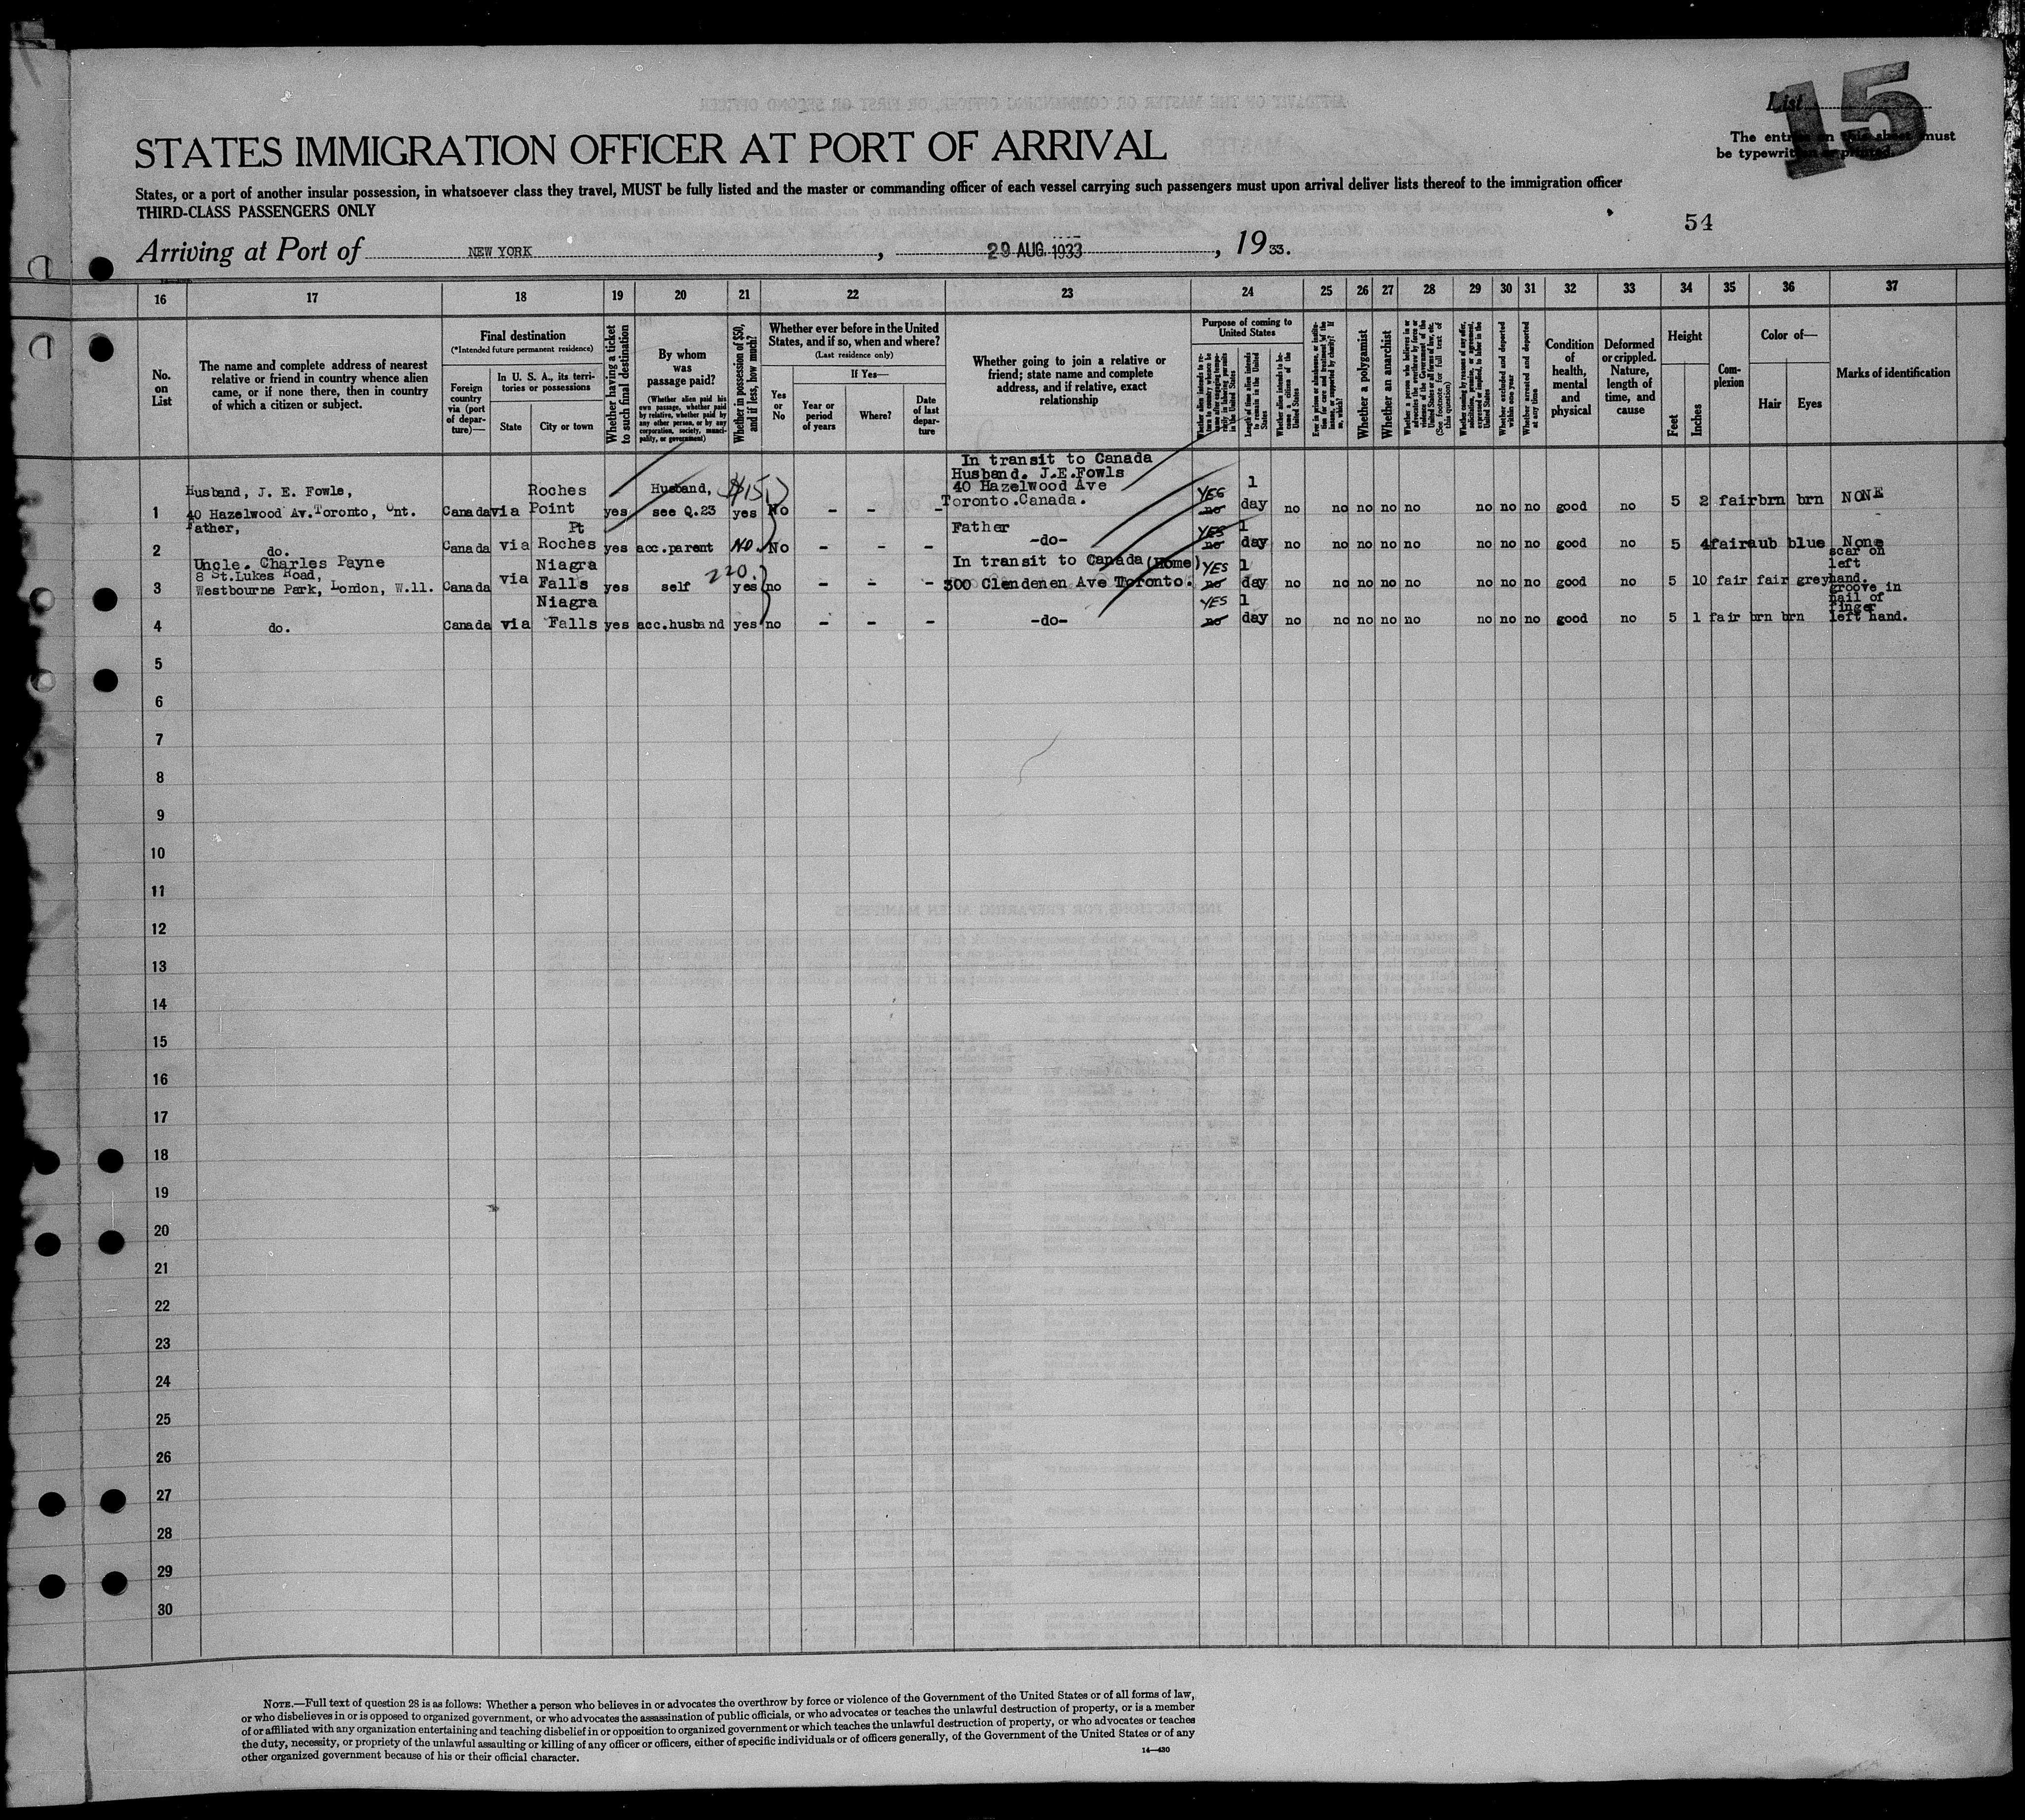 List
15
The entries on this sheet must
be typewritten or printed.
STATES IMMIGRATION OFFICER AT PORT OF ARRIVAL
States, or a port of another insular possession, in whatsoever class they travel, MUST be fully listed and the master or commanding officer of each vessel carrying such passengers must upon arrival deliver lists thereof to the immigration officer
THIRD-CLASS PASSENGERS ONLY
54
Arriving at Port of NEW YORK, 29 AUG. 1933, 19 33.
16 17 18 19 20 21 22 23 24 25 26 27 28 29 30 31 32 33 34 35 36 37
No. on List
The name and complete address of nearest
relative or friend in country whence alien
came, or if none there, then in country
of which a citizen or subject.
Final destination
(*Intended future permanent residence)
Foreign country via (port of departure)—
In U. S. A., its territories or possessions
State
City or town
Whether having a ticket to such final destination
By whom was passage paid?
(Whether alien paid his own passage, whether paid by relative, whether paid by any other person, or by any corporation, society, municipality, or government)
Whether in possession of $50, and if less, how much?
Whether ever before in the United
States, and if so, when and where?
(Last residence only)
Yes or No
If Yes—
Year or period of years
Where?
Date of last departure
Whether going to join a relative or
friend; state name and complete
address, and if relative, exact
relationship
Purpose of coming to United States
Length of time alien intends to remain in the United States
Whether alien intends to become a citizen of the United States
Whether a polygamist
Whether an anarchist
Whether excluded and deported within one year
Whether arrested and deported at any time
Condition of health, mental and physical
Deformed or crippled. Nature, length of time, and cause
Height
Feet
Inches
Complexion
Color of—
Hair
Eyes
Marks of identification
In transit to Canada
Husband. J.E.Fowls
40 Hazelwood Ave
Toronto.Canada.
1 Husband, J. E. Fowle,
40 Hazelwood Av.Toronto, Ont. Canada via Roches Point yes Husband, see Q.23 $15 yes No - - - YES no 1 day no no no no no no no no good no 5 2 fair brn brn NONE
2 Father,
do. Canada via Roches Pt yes acc.parent NO. No - - - Father -do- YES no 1 day no no no no no no no no good no 5 4 fair aub blue None
3 Uncle. Charles Payne
8 St.Lukes Road,
Westbourne Park, London, W.11. Canada via Niagra Falls yes self 220. yes no - - - In transit to Canada (Home)
300 Clendenen Ave Toronto. YES no 1 day no no no no no no no no good no 5 10 fair fair grey scar on left hand.
4 do. Canada via Niagra Falls yes acc.husband yes no - - - -do- YES no 1 day no no no no no no no no good no 5 1 fair brn brn groove in nail of finger left hand.
5
6
7
8
9
10
11
12
13
14
15
16
17
18
19
20
21
22
23
24
25
26
27
28
29
30
NOTE.—Full text of question 28 is as follows: Whether a person who believes in or advocates the overthrow by force or violence of the Government of the United States or of all forms of law,
or who disbelieves in or is opposed to organized government, or who advocates the assassination of public officials, or who advocates or teaches the unlawful destruction of property, or is a member
of or affiliated with any organization entertaining and teaching disbelief in or opposition to organized government or which teaches the unlawful destruction of property, or who advocates or teaches
the duty, necessity, or propriety of the unlawful assaulting or killing of any officer or officers, either of specific individuals or of officers generally, of the Government of the United States or of any
other organized government because of his or their official character.
14—430